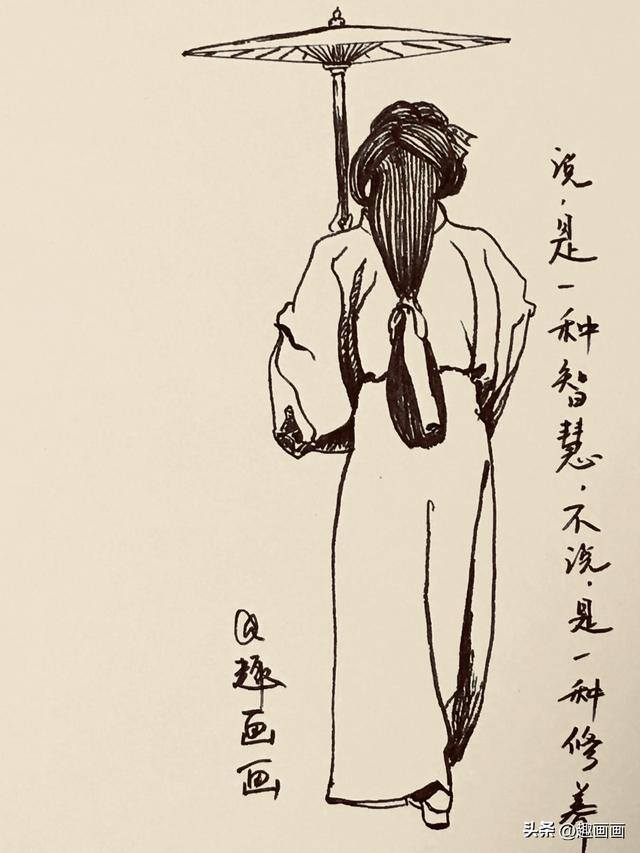 说，是一种智慧，不说，是一种修养
@趣画画
头条 @趣画画